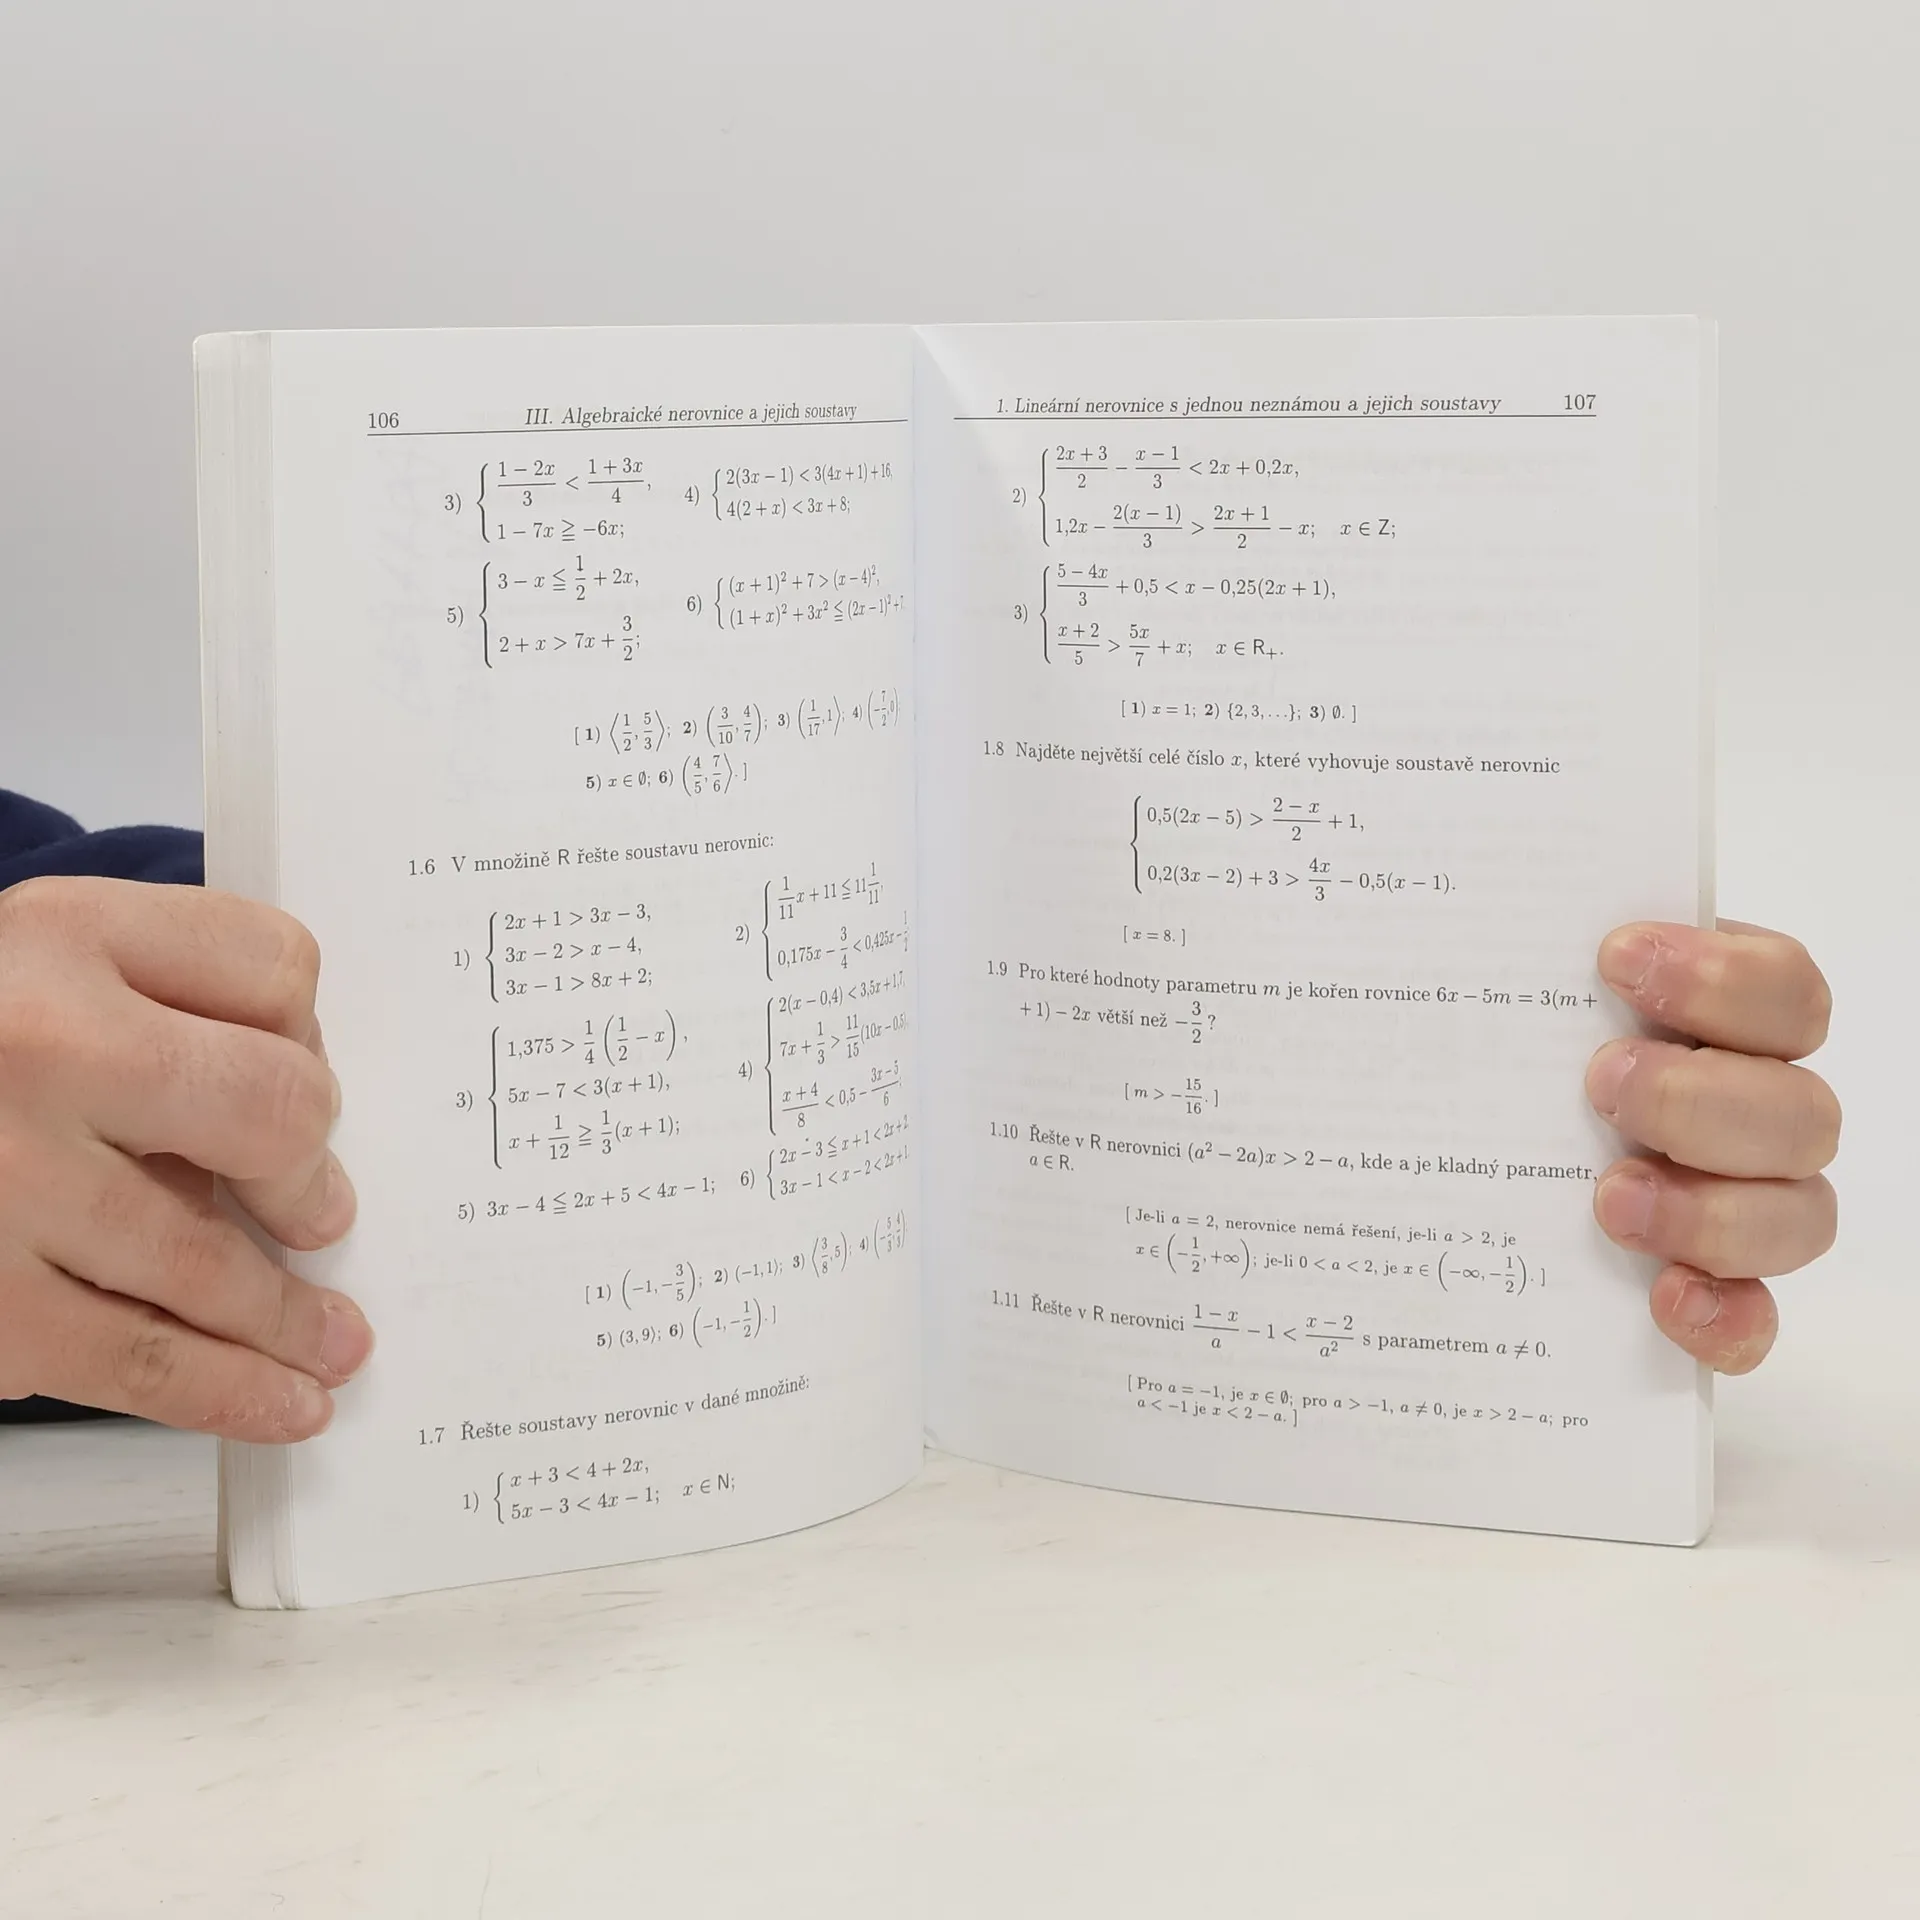 106 III. Algebraické nerovnice a jejich soustavy
3) { (1 − 2x)/3 < (1 + 3x)/4,
1 − 7x ≧ −6x;
4) { 2(3x − 1) < 3(4x + 1) + 16,
4(2 + x) < 3x + 8;
5) { 3 − x ≦ 1/2 + 2x,
2 + x > 7x + 3/2;
6) { (x + 1)² + 7 > (x − 4)²,
(1 + x)² + 3x² ≦ (2x − 1)² + 7.
[ 1) ⟨1/2, 5/3⟩; 2) (3/10, 4/7); 3) (1/17, 1⟩; 4) (−7/2, 0);
5) x ∈ ∅; 6) (4/5, 7/6⟩. ]
1.6 V množině R řešte soustavu nerovnic:
1) { 2x + 1 > 3x − 3,
3x − 2 > x − 4,
3x − 1 > 8x + 2;
2) { 1/11 x + 11 ≦ 11 1/11,
0,175x − 3/4 < 0,425x −
3) { 1,375 > 1/4 (1/2 − x),
5x − 7 < 3(x + 1),
x + 1/12 ≧ 1/3 (x + 1);
4) { 2(x − 0,4) < 3,5x + 1,7,
7x + 1/3 > 11/15 (10x − 0,5),
(x + 4)/8 < 0,5 − (3x − 5)/6;
5) 3x − 4 ≦ 2x + 5 < 4x − 1;
6) { 2x − 3 ≦ x + 1 < 2x + 2,
3x − 1 < x − 2 < 2x + 1.
[ 1) (−1, −3/5); 2) (−1, 1); 3) ⟨3/8, 5); 4) (−5/3, 4/3);
5) (3, 9⟩; 6) (−1, −1/2). ]
1.7 Řešte soustavy nerovnic v dané množině:
1) { x + 3 < 4 + 2x,
5x − 3 < 4x − 1; x ∈ N;
1. Lineární nerovnice s jednou neznámou a jejich soustavy 107
2) { (2x + 3)/2 − (x − 1)/3 < 2x + 0,2x,
1,2x − 2(x − 1)/3 > (2x + 1)/2 − x; x ∈ Z;
3) { (5 − 4x)/3 + 0,5 < x − 0,25(2x + 1),
(x + 2)/5 > 5x/7 + x; x ∈ R₊.
[ 1) x = 1; 2) {2, 3, …}; 3) ∅. ]
1.8 Najděte největší celé číslo x, které vyhovuje soustavě nerovnic
{ 0,5(2x − 5) > (2 − x)/2 + 1,
0,2(3x − 2) + 3 > 4x/3 − 0,5(x − 1).
[ x = 8. ]
1.9 Pro které hodnoty parametru m je kořen rovnice 6x − 5m = 3(m +
+ 1) − 2x větší než −3/2 ?
[ m > −15/16. ]
1.10 Řešte v R nerovnici (a² − 2a)x > 2 − a, kde a je kladný parametr,
a ∈ R.
[ Je-li a = 2, nerovnice nemá řešení, je-li a > 2, je
x ∈ (−1/2, +∞); je-li 0 < a < 2, je x ∈ (−∞, −1/2). ]
1.11 Řešte v R nerovnici (1 − x)/a − 1 < (x − 2)/a² s parametrem a ≠ 0.
[ Pro a = −1, je x ∈ ∅; pro a > −1, a ≠ 0, je x > 2 − a; pro
a < −1 je x < 2 − a. ]